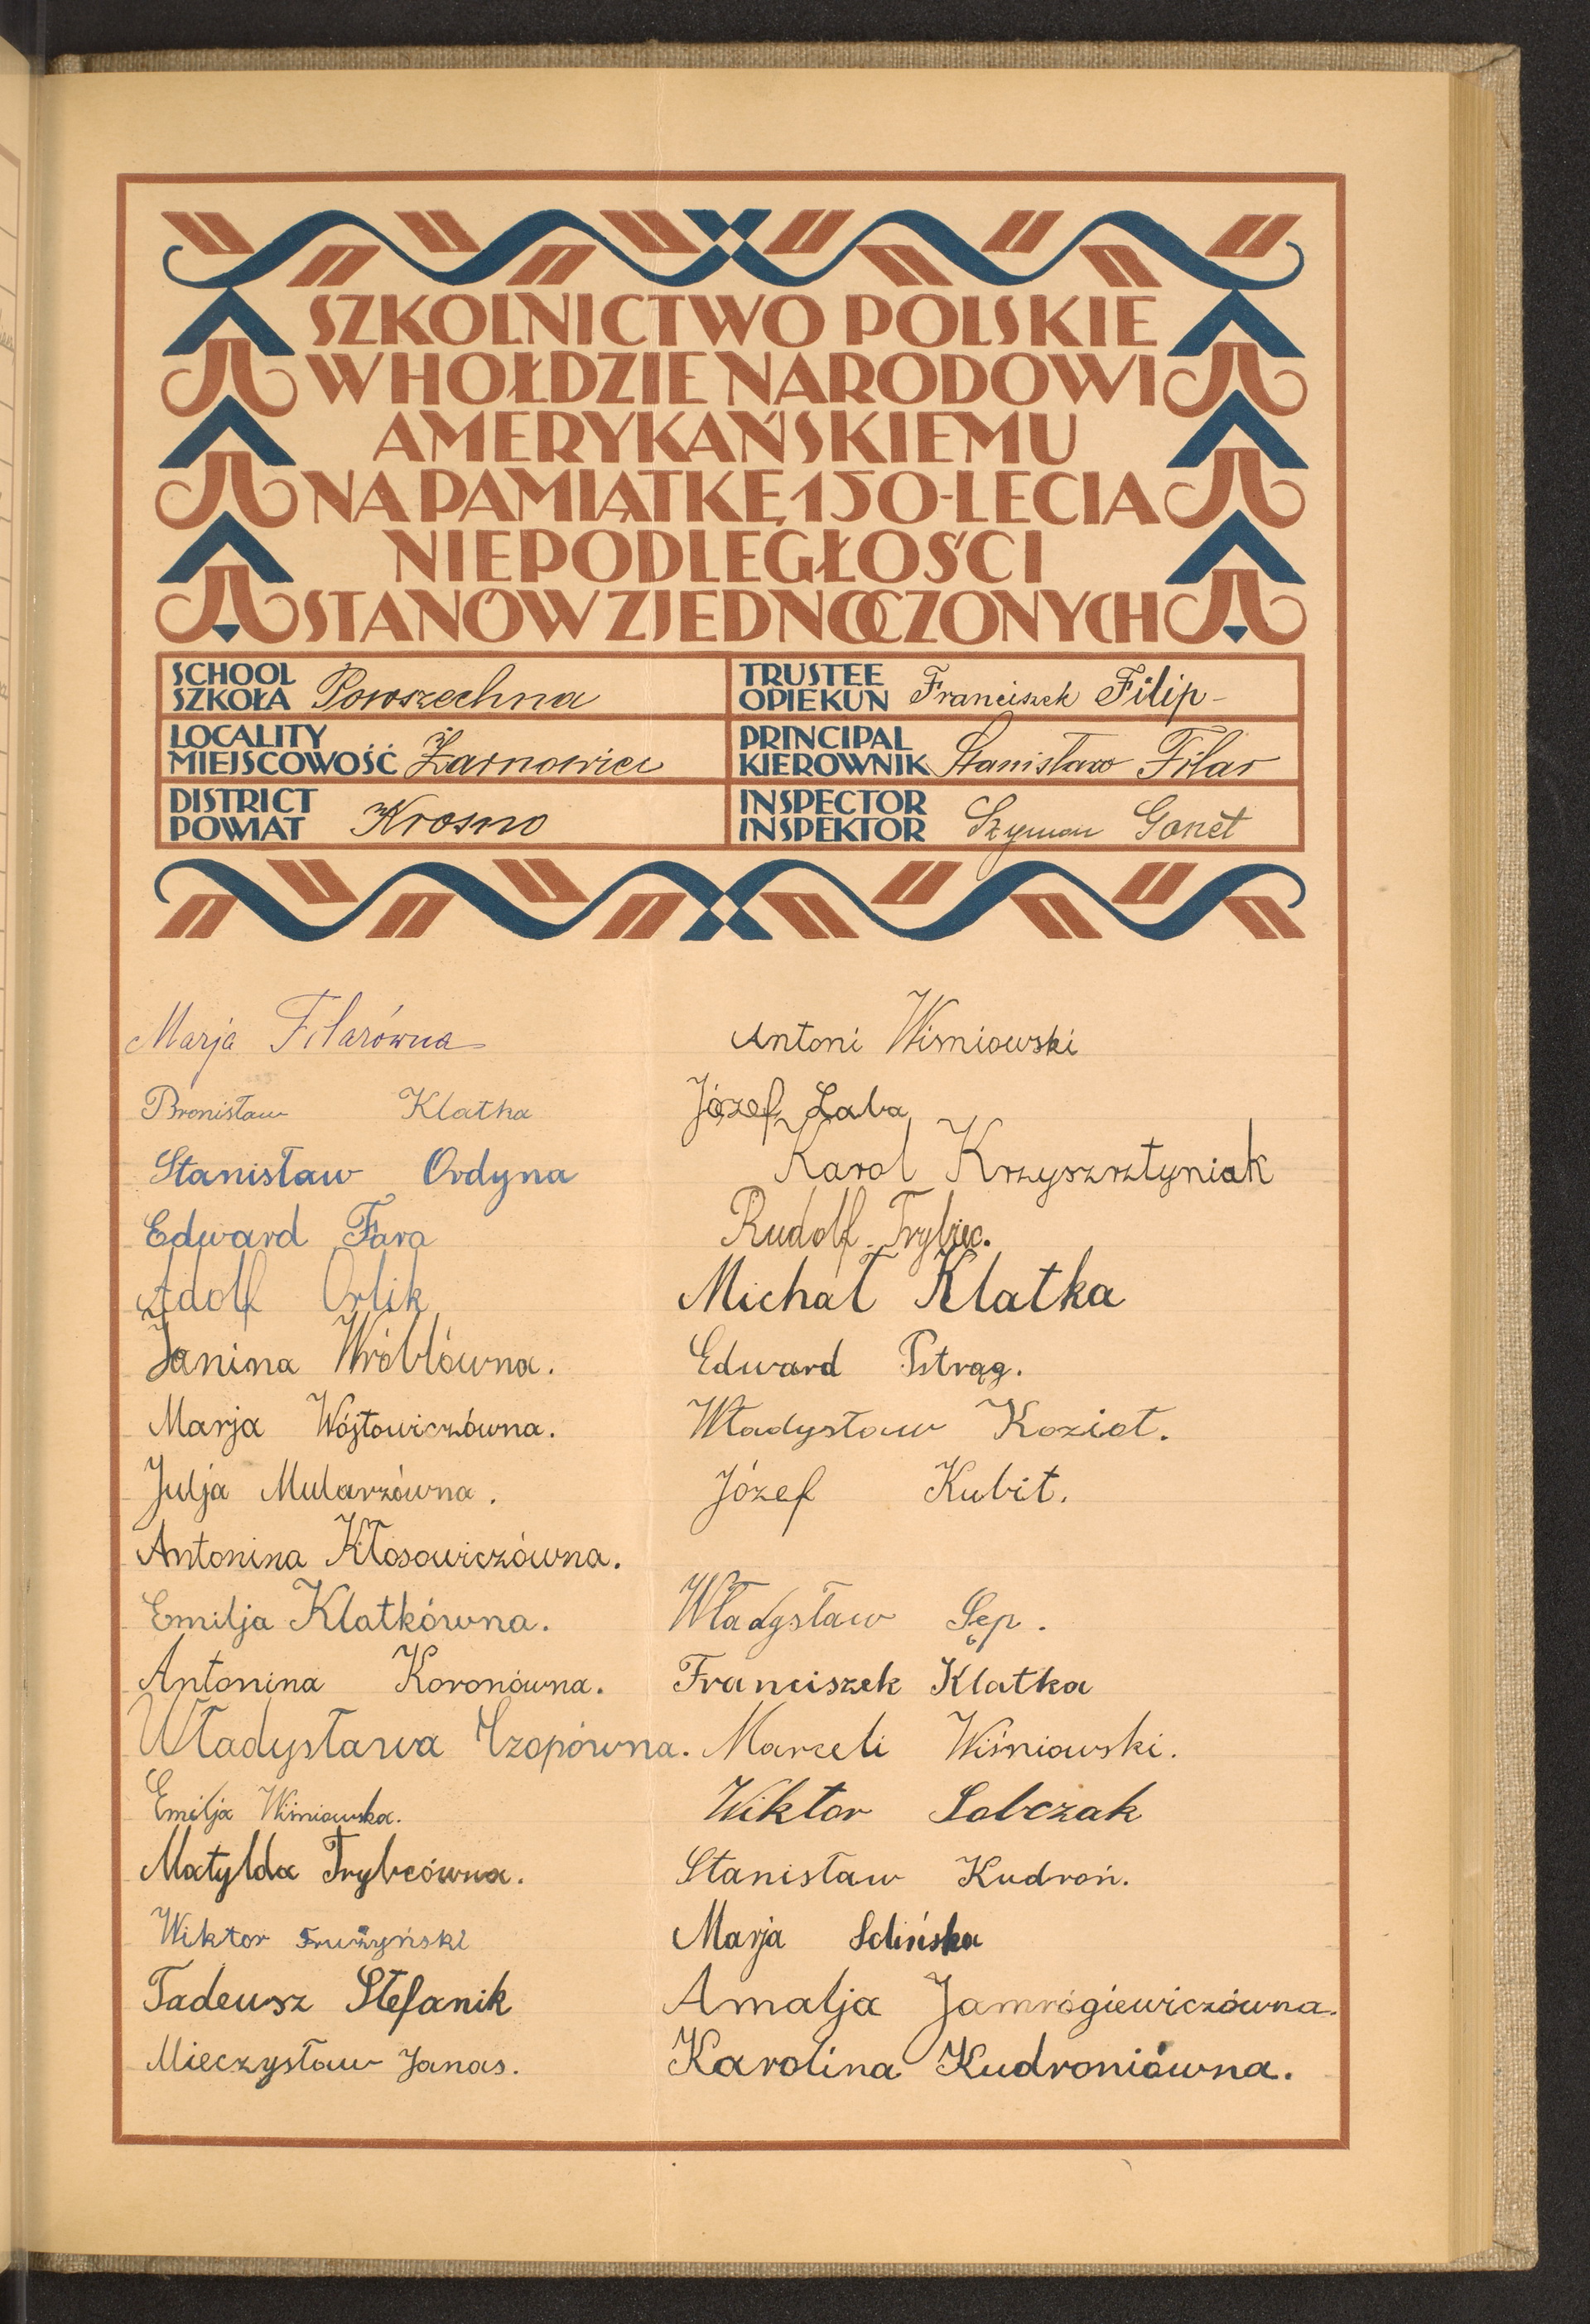 SZKOLNICTWO POLSKIE
W HOŁDZIE NARODOWI
AMERYKAŃSKIEMU
NA PAMIĄTKĘ 150-LECIA
NIEPODLEGŁOŚCI
STANÓW ZJEDNOCZONYCH
SCHOOL
SZKOŁA Powszechna
TRUSTEE
OPIEKUN Franciszek Filip -
LOCALITY
MIEJSCOWOŚĆ Żarnowiec
PRINCIPAL
KIEROWNIK Stanisław Filar
DISTRICT
POWIAT Krosno
INSPECTOR
INSPEKTOR Szymon Gonet
Marja Filarówna
Bronisław Klatka
Stanisław Ordyna
Edward Fara
Adolf Orlik
Janina Wróblówna.
Marja Wójtowiczówna.
Julja Mularzówna.
Antonina Kłosowiczówna.
Emilja Klatkówna.
Antonina Koronówna.
Władysława Czopówna.
Emilja Wiśniowska.
Matylda Trybcówna.
Wiktor
Tadeusz Stefanik
Mieczysław Janas.
Antoni Wiśniowski
Józef Laba
Karol Krzyszrztyniak
Rudolf Trybiec.
Michał Klatka
Edward Pstrąg.
Władysław Kozioł.
Józef Kubit.
Władysław Sęp.
Franciszek Klatka
Marceli Wiśniowski.
Wiktor Sobczak
Stanisław Kudroń.
Marja Solińska
Amalja Jamrógiewiczówna.
Karolina Kudroniówna.